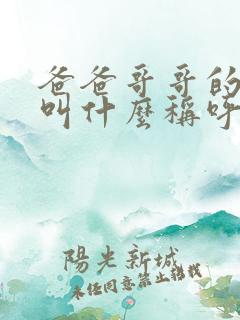 爸爸哥哥的
叫什麼稱呼
陽光新城
未經同意禁止轉載